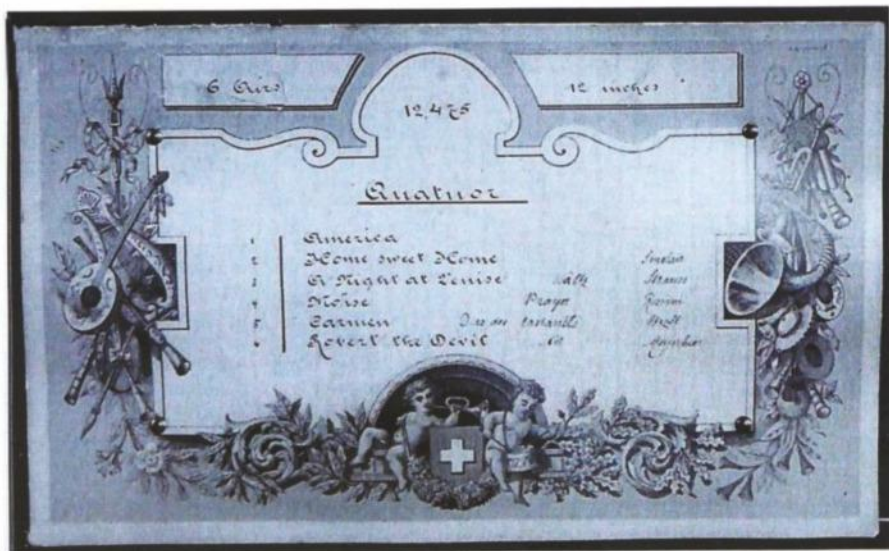 6 Airs
12 inches
12,475
Quatuor
1 America
2 Home sweet Home
3 A Night at Venise Waltz Strauss
4 Moïse Prayer Rossini
5 Carmen Bizet
6 Robert the Devil Meyerbeer